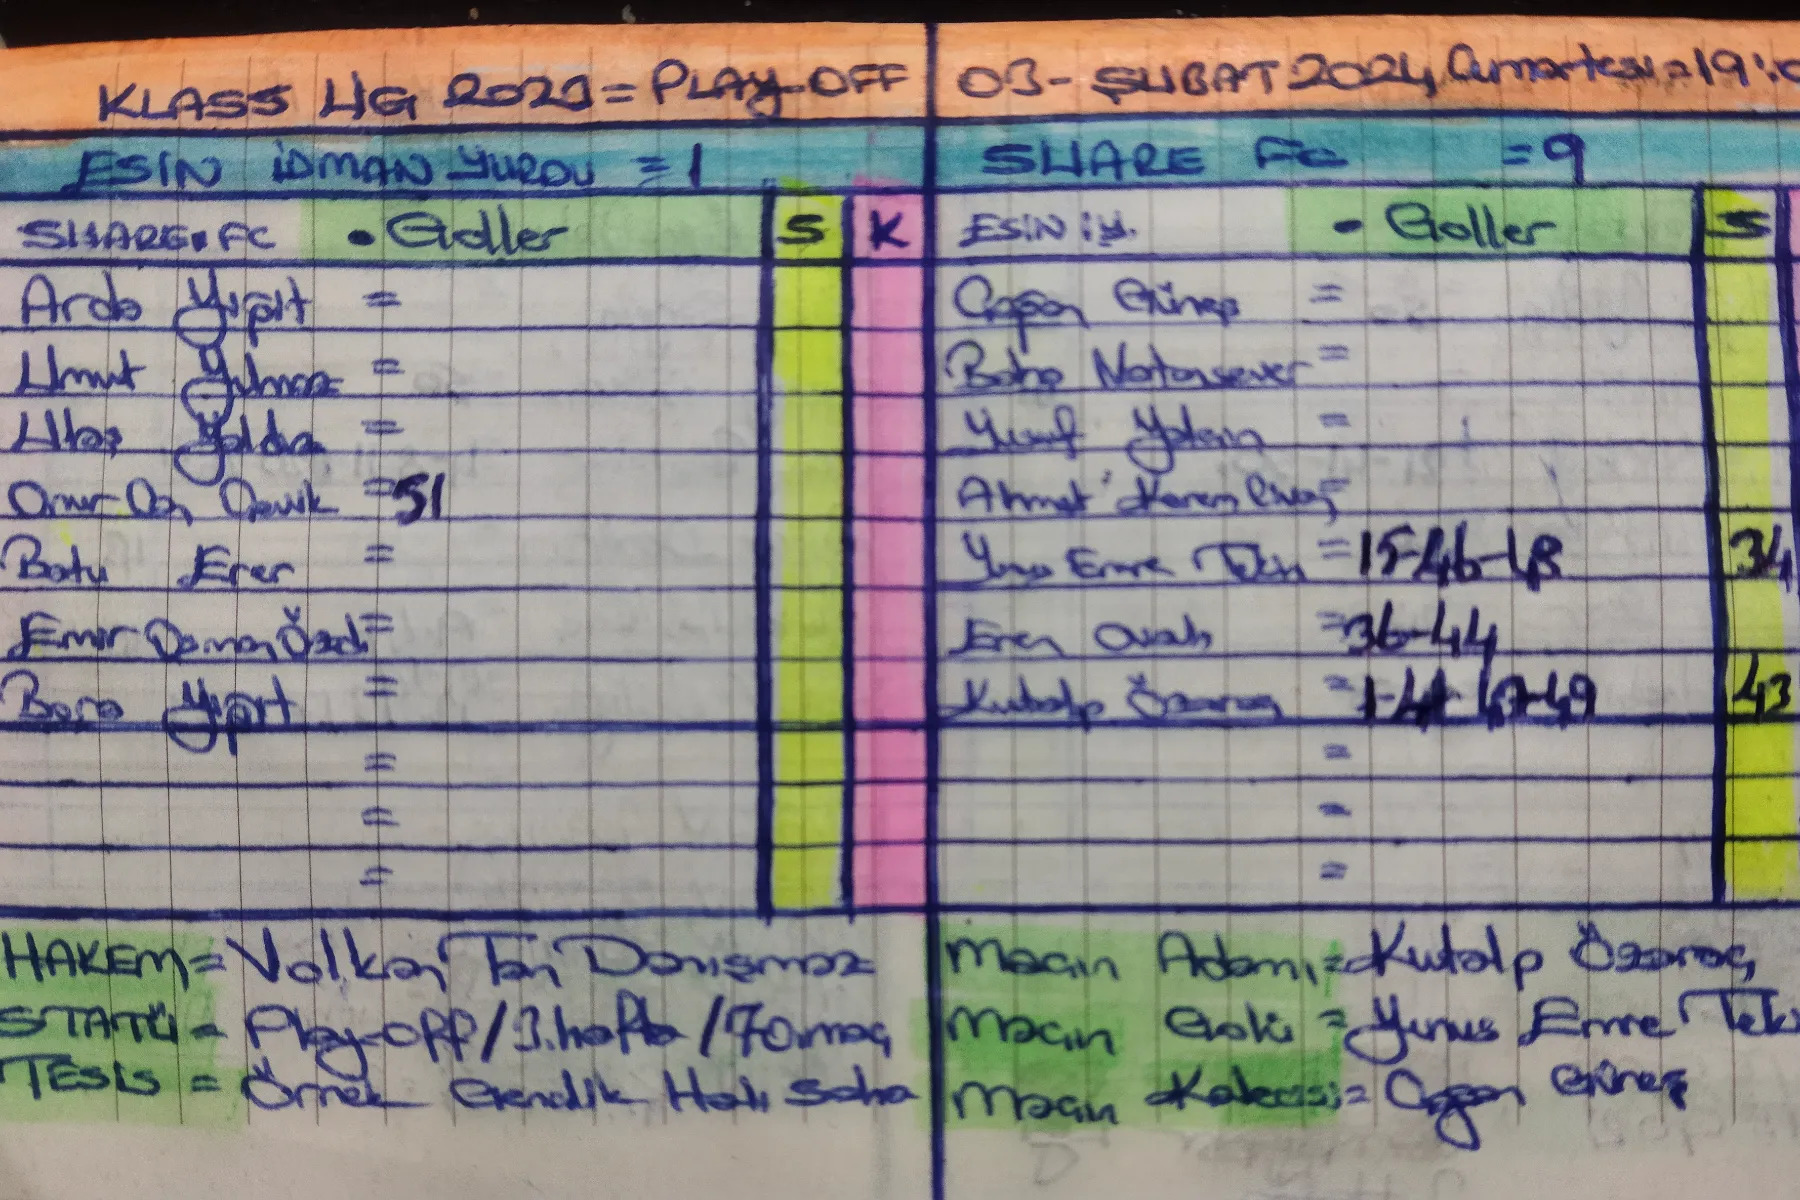 KLASS LİG 2023 = PLAY-OFF
03 - ŞUBAT 2024, Cumartesi = 19:0
ESİN İDMAN YURDU = 1
SHARE FC = 9
SHARE FC • Goller S K
ESİN İ.Y. - Goller S
Arda Yiğit =
Umut Yılmaz =
Ulaş Yaldız =
Onur Can =51
Batu Erer =
Emir Duman =
Bora Yiğit =
=
=
=
Çağan Güneş =
Baha Vatansever =
Yusuf Yalçın =
Ahmet Kerem =
Yunus Emre Tekin =15-46-48 34
Eren =36-44
Kutalp Özaraç =1-41-47-49 43
=
=
=
HAKEM = Volkan Tan Danışmaz
STATÜ = Play-off/3.hafta/70.maç
TESİS = Örnek Gençlik Halı Saha
Maçın Adamı = Kutalp Özaraç
Maçın Golü = Yunus Emre Teki
Maçın Kalecisi = Çağan Güneş